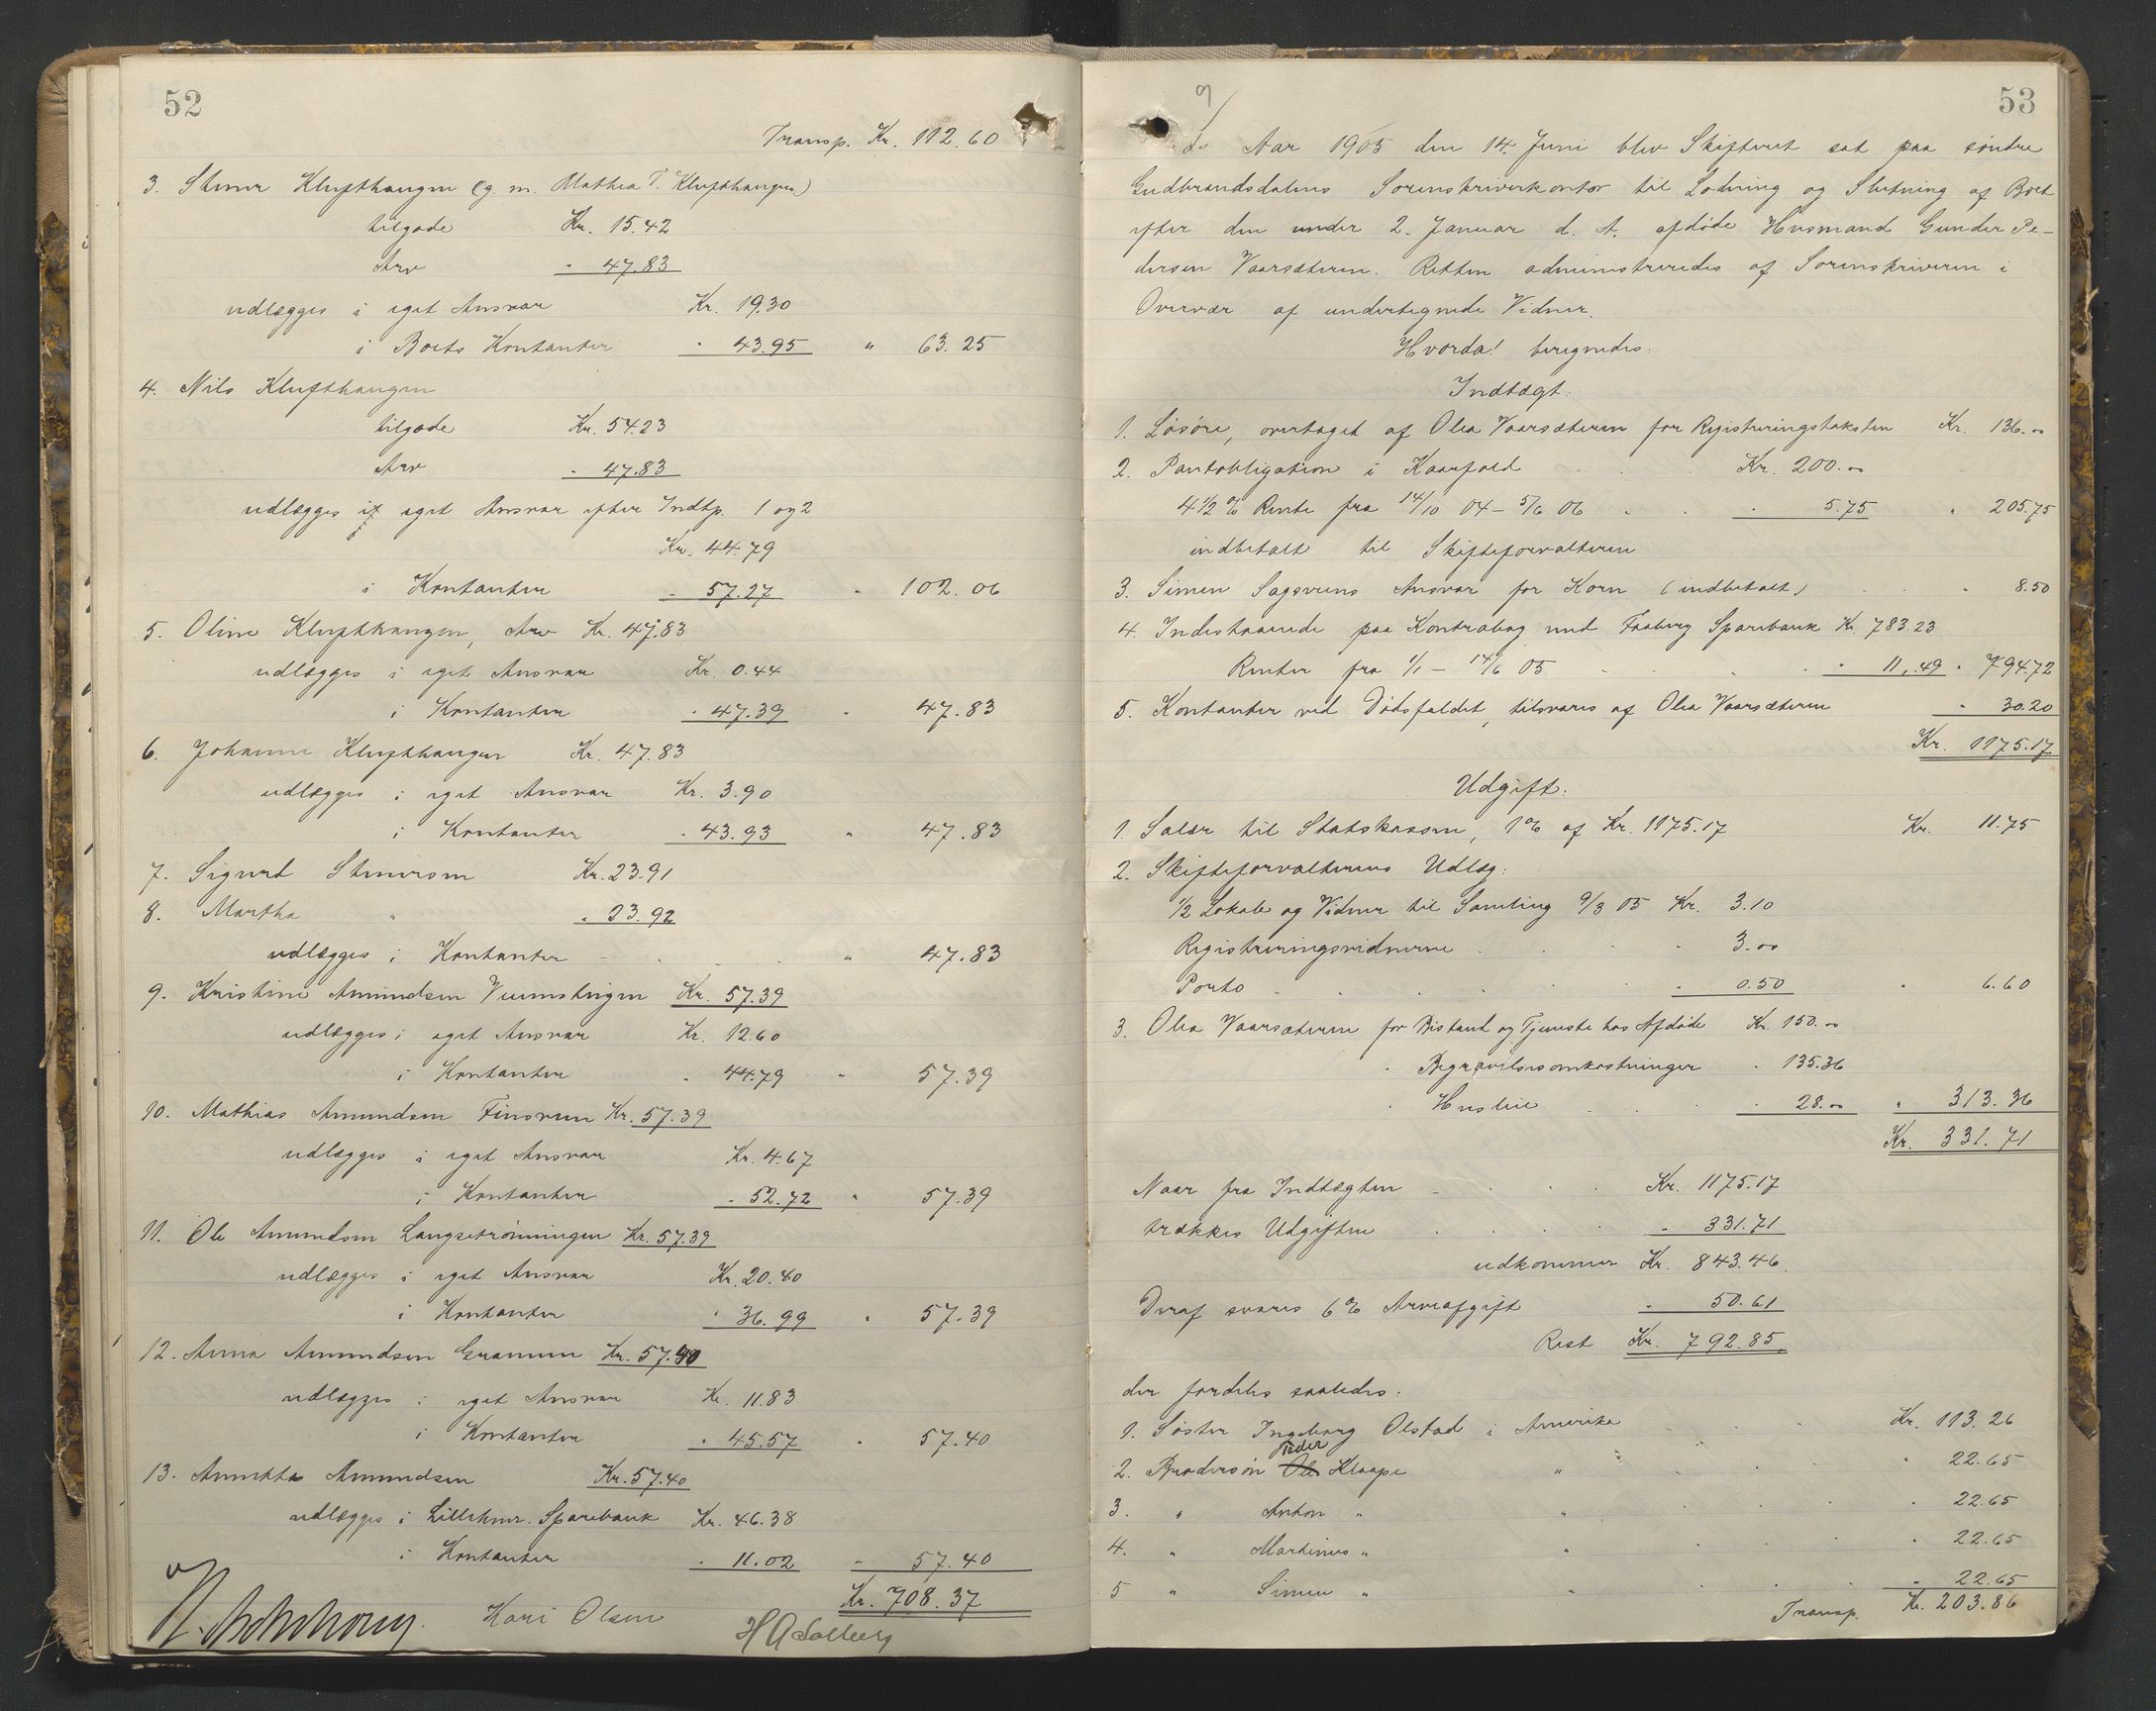 52
Transp. Kr. 112.60
3. Stener Klufthaugen (g. m. Mathea T. Klufthaugen)
tilgode Kr. 15.42
Arv " 47.83
udlægges i eget Ansvar Kr. 19.30
i Boets Kontanter " 43.95 " 63.25
4. Nils Klufthaugen
tilgode Kr. 54.23
Arv " 47.83
udlægges i eget Ansvar efter Indtp. 1 og 2
Kr. 44.79
i Kontanter " 57.27 " 102.06
5. Oline Klufthaugen, Arv Kr. 47.83
udlægges i eget Ansvar Kr. 0.44
i Kontanter " 47.39 " 47.83
6. Johanne Klufthaugen Kr. 47.83
udlægges i eget Ansvar Kr. 3.90
i Kontanter " 43.93 " 47.83
7. Sigurd Stenersen Kr. 23.91
8. Martha " " 23.92
udlægges i Kontanter " 47.83
9. Kristine Amundsen Kr. 57.39
udlægges i eget Ansvar Kr. 12.60
i Kontanter " 44.79 " 57.39
10. Mathias Amundsen Kr. 57.39
udlægges i eget Ansvar Kr. 4.67
i Kontanter " 52.72 " 57.39
11. Ole Amundsen Langsetrønningen Kr. 57.39
udlægges i eget Ansvar Kr. 20.40
i Kontanter " 36.99 " 57.39
12. Anna Amundsen Granum Kr. 57.40
udlægges i eget Ansvar Kr. 11.83
i Kontanter " 45.57 " 57.40
13. Annette Amundsen Kr. 57.40
udlægges i Lillehmr. Sparebank Kr. 46.38
i Kontanter " 11.02 " 57.40
Kr. 708.37
Kari Olsen H A Solberg
9
53
Aar 1905 den 14. Juni blev Skifteret sat paa søndre
Gudbrandsdalens Sorenskriverkontor til Lodning og Slutning af Boet
efter den under 2. Januar d. A. afdøde Husmand Gunder Pe-
dersen Vaarsæteren. Retten administreredes af Sorenskriveren i
Overvær af undertegnede Vidner.
Hvorda! beregnedes:
Indtægt:
1. Løsøre, overtaget af Olea Vaarsæteren for Registreringstaksten Kr. 136.00
2. Pantobligation i Kaarfald Kr. 200.00
4 1/2 % Rente fra 14/10 04 – 5/6 06 " 5.75 " 205.75
indbetalt til Skifteforvalteren
3. Simen Sagsveens Ansvar for Korn (indbetalt) " 8.50
4. Indestaaende paa Kontrabog med Faaberg Sparebank Kr. 783.23
Renter fra 1/1 – 14/6 05 " 11.49 " 794.72
5. Kontanter ved Dødsfaldet, tilsvares af Olea Vaarsæteren " 30.20
Kr. 1175.17
Udgift:
1. Salær til Statskassen, 1% af Kr. 1175.17 Kr. 11.75
2. Skifteforvalterens Udlæg:
1/2 Lokale og Vidner til Samling 9/3 05 Kr. 3.10
Registreringsvidnerne " 3.00
Porto " 0.50 " 6.60
3. Olea Vaarsæteren for Bistand og Tjeneste hos Afdøde Kr. 150.00
" Begravelsesomkostninger " 135.36
" Husleie " 28.00 " 313.36
Kr. 331.71
Naar fra Indtægten Kr. 1175.17
trækkes Udgiften " 331.71
udkommer Kr. 843.46
Deraf svares 6% Arveafgift " 50.61
Rest Kr. 792.85
der fordeles saaledes:
1. Søster Ingeborg Olstad i Amerika Kr. 113.26
Peder
2. Brodersøn Ole Klaape " " 22.65
3. " Anton " " " 22.65
4. " Martinus " " " 22.65
5 " Simen " " " 22.65
Transp. Kr. 203.86